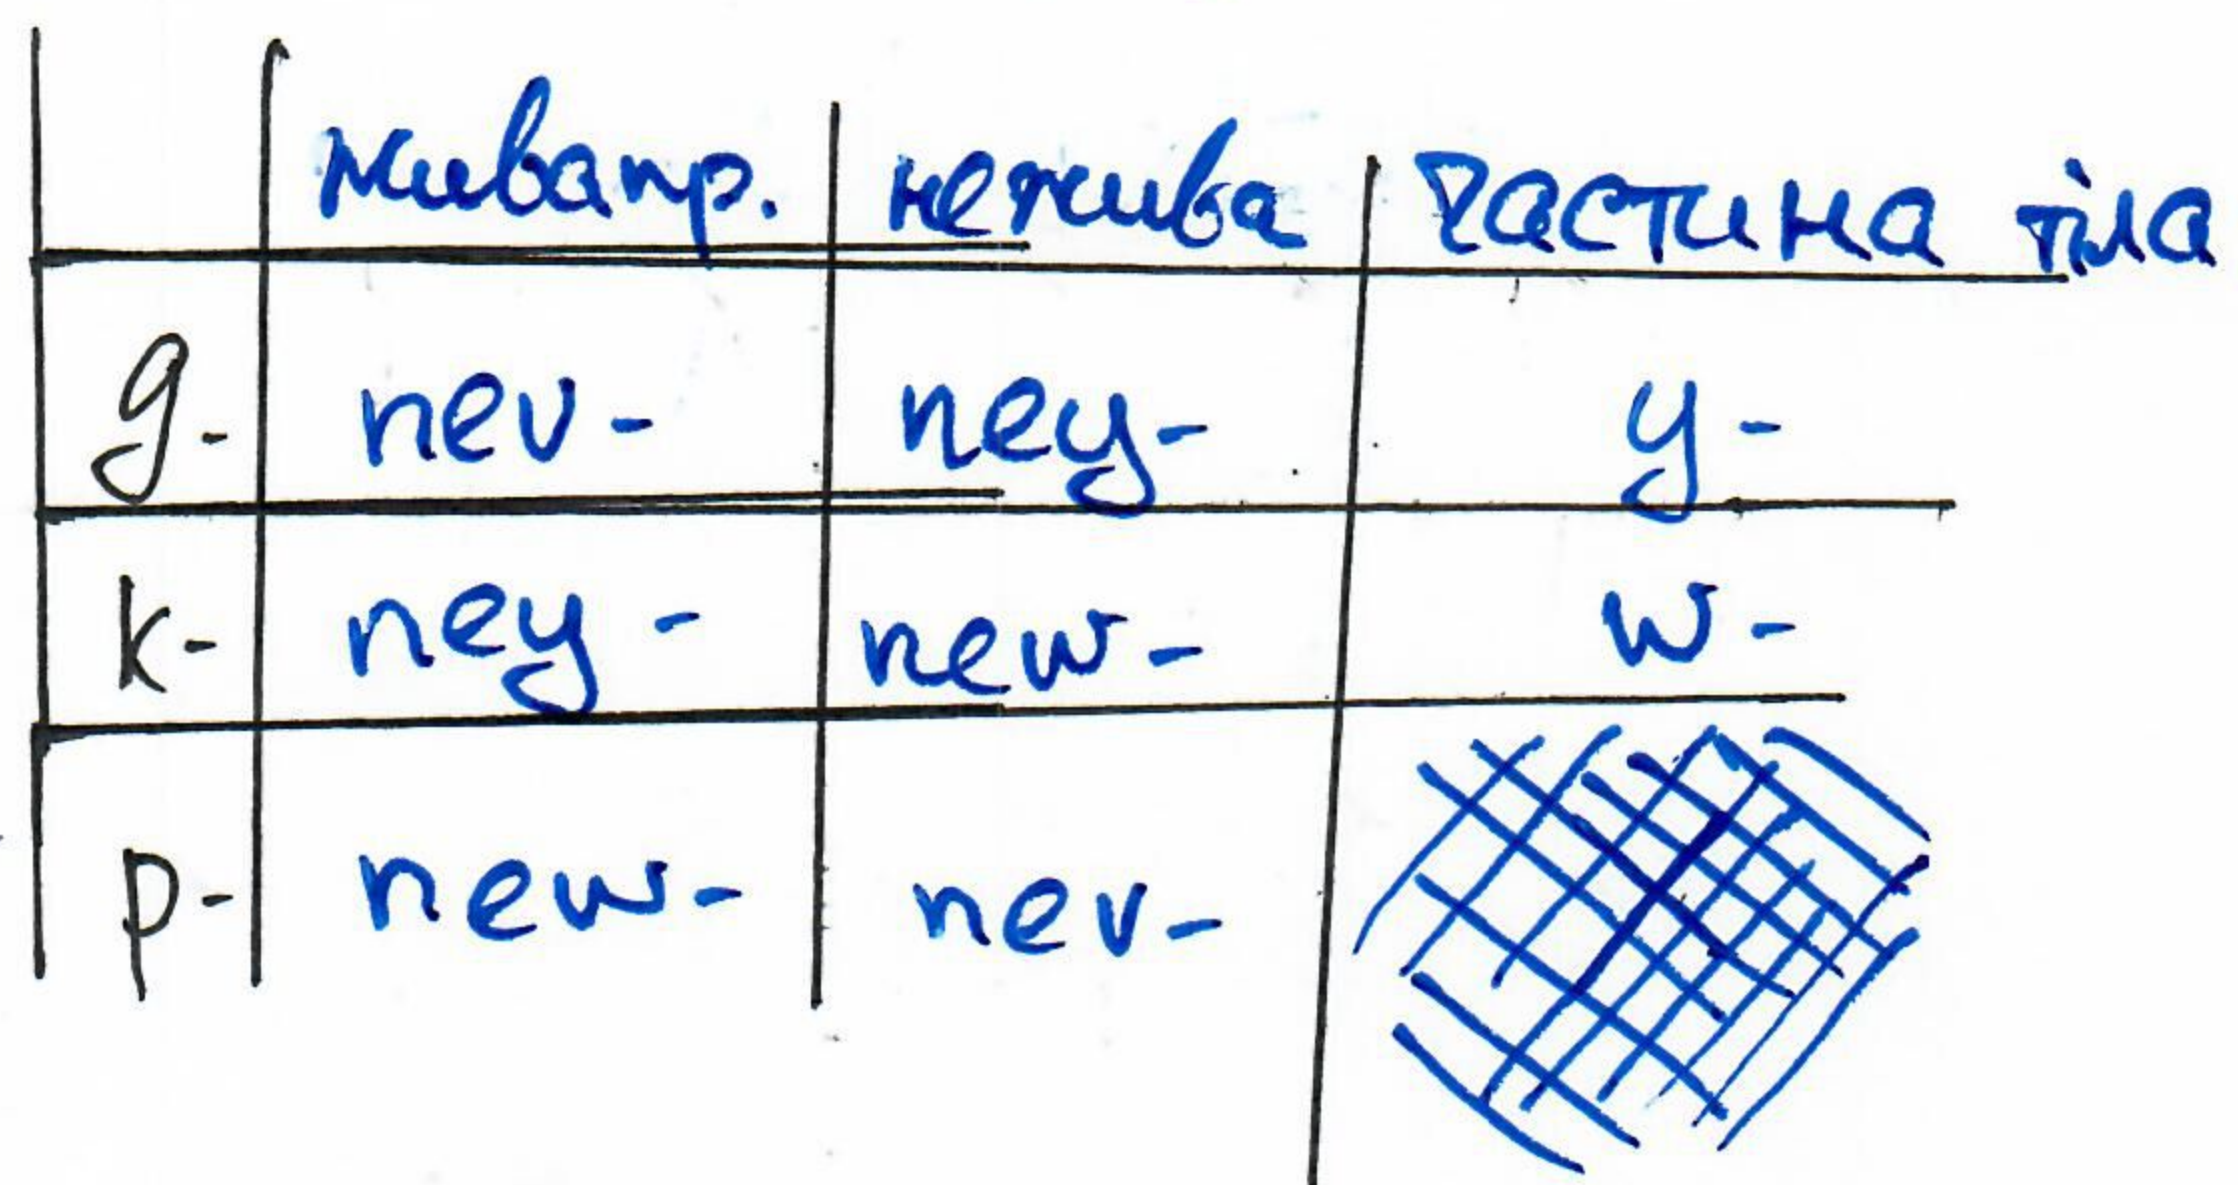 жива пр. нежива частина тіла
g- nev- ney- y-
k- ney- new- w-
p- new- nev-